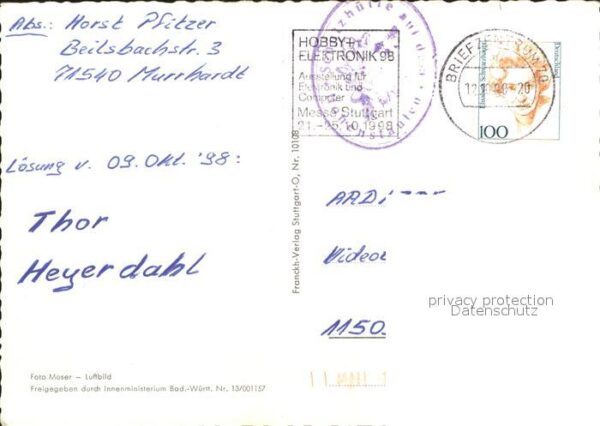 Abs.: Horst Pfitzer
Beilsbachstr. 3
71540 Murrhardt
Lösung v. 09. Okt. '98:
Thor
Heyerdahl
Foto Moser – Luftbild
Freigegeben durch Innenministerium Bad.-Württ. Nr. 13/001157
Franckh-Verlag Stuttgart-O, Nr. 10108
HOBBY+
ELEKTRONIK 98
Ausstellung für
Elektronik und
Computer
Messe Stuttgart
21.-25.10.1998
BRIEFZENTRUM 70
Deutschland
100
ARD
Video
1150
privacy protection
Datenschutz